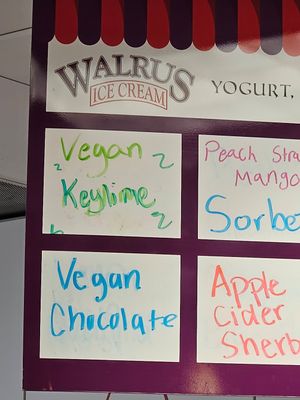 WALRUS
ICE CREAM
YOGURT,
Vegan
Keylime
Peach Stra
Mango
Sorbe
Vegan
Chocolate
Apple
Cider
Sherb